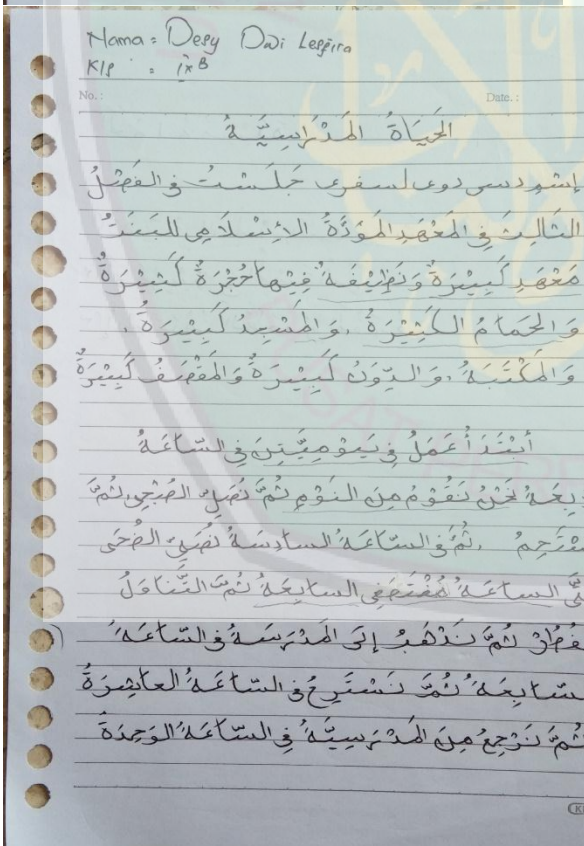 Nama = Desy Dwi Lespira
Kls : IX B
No. : Date. :
الحَيَاةُ المَدْرَاسِيَّةُ
إسْمِ دسى دوى لسفرى جَلَسْتُ فى الفَصْلُ
الثالِثِ فِى المَعْهَدِ المَوَدَّةُ الإسْلَامِى للبَنَتُ
مَعْهَدِ كَبِيْرَةٌ وَنَظِيْفَةٌ فِيْهَا حُجْرَةٌ كَثِيْرَةٌ
وَ الحَمَامُ الكَثِيْرَةُ ، وَ المَسْجِدُ كَبِيْرَةٌ .
وَ المَكْتَبَةُ ، وَ الدِّوَنُ كَبِيْرَةٌ وَ المَقْصَفُ كَبِيْرَةٌ
أَبْتَدَأُ عَمَلُ فِى يَوْمِيَّتِنَ فِى السَّاعَةُ
نَحْنُ نَقُوْمُ مِنَ النَوْمِ ثُمَّ نُصَلِّ الصُبْحِى ثُمَّ
ثُمَّ فى السَّاعَةُ السادِسَةُ نُصَلِّى الضُحَى
الساعَةُ مُنْتَصَفِى السابِعَةُ ثُمَّ التَّنَاوَلُ
فُطُرْ ثُمَّ نَذْهَبُ إلَى المَدْرَسَةُ فى السَّاعَةُ
السَّابِعَةُ ثُمَّ نَسْتَرِحُ فى السَّاعَةُ العاشِرَةُ
ثُمَّ نَرْجِعُ مِنَ المَدْرَسِيَّةُ فِى السَّاعَةُ الوَحِدَةُ